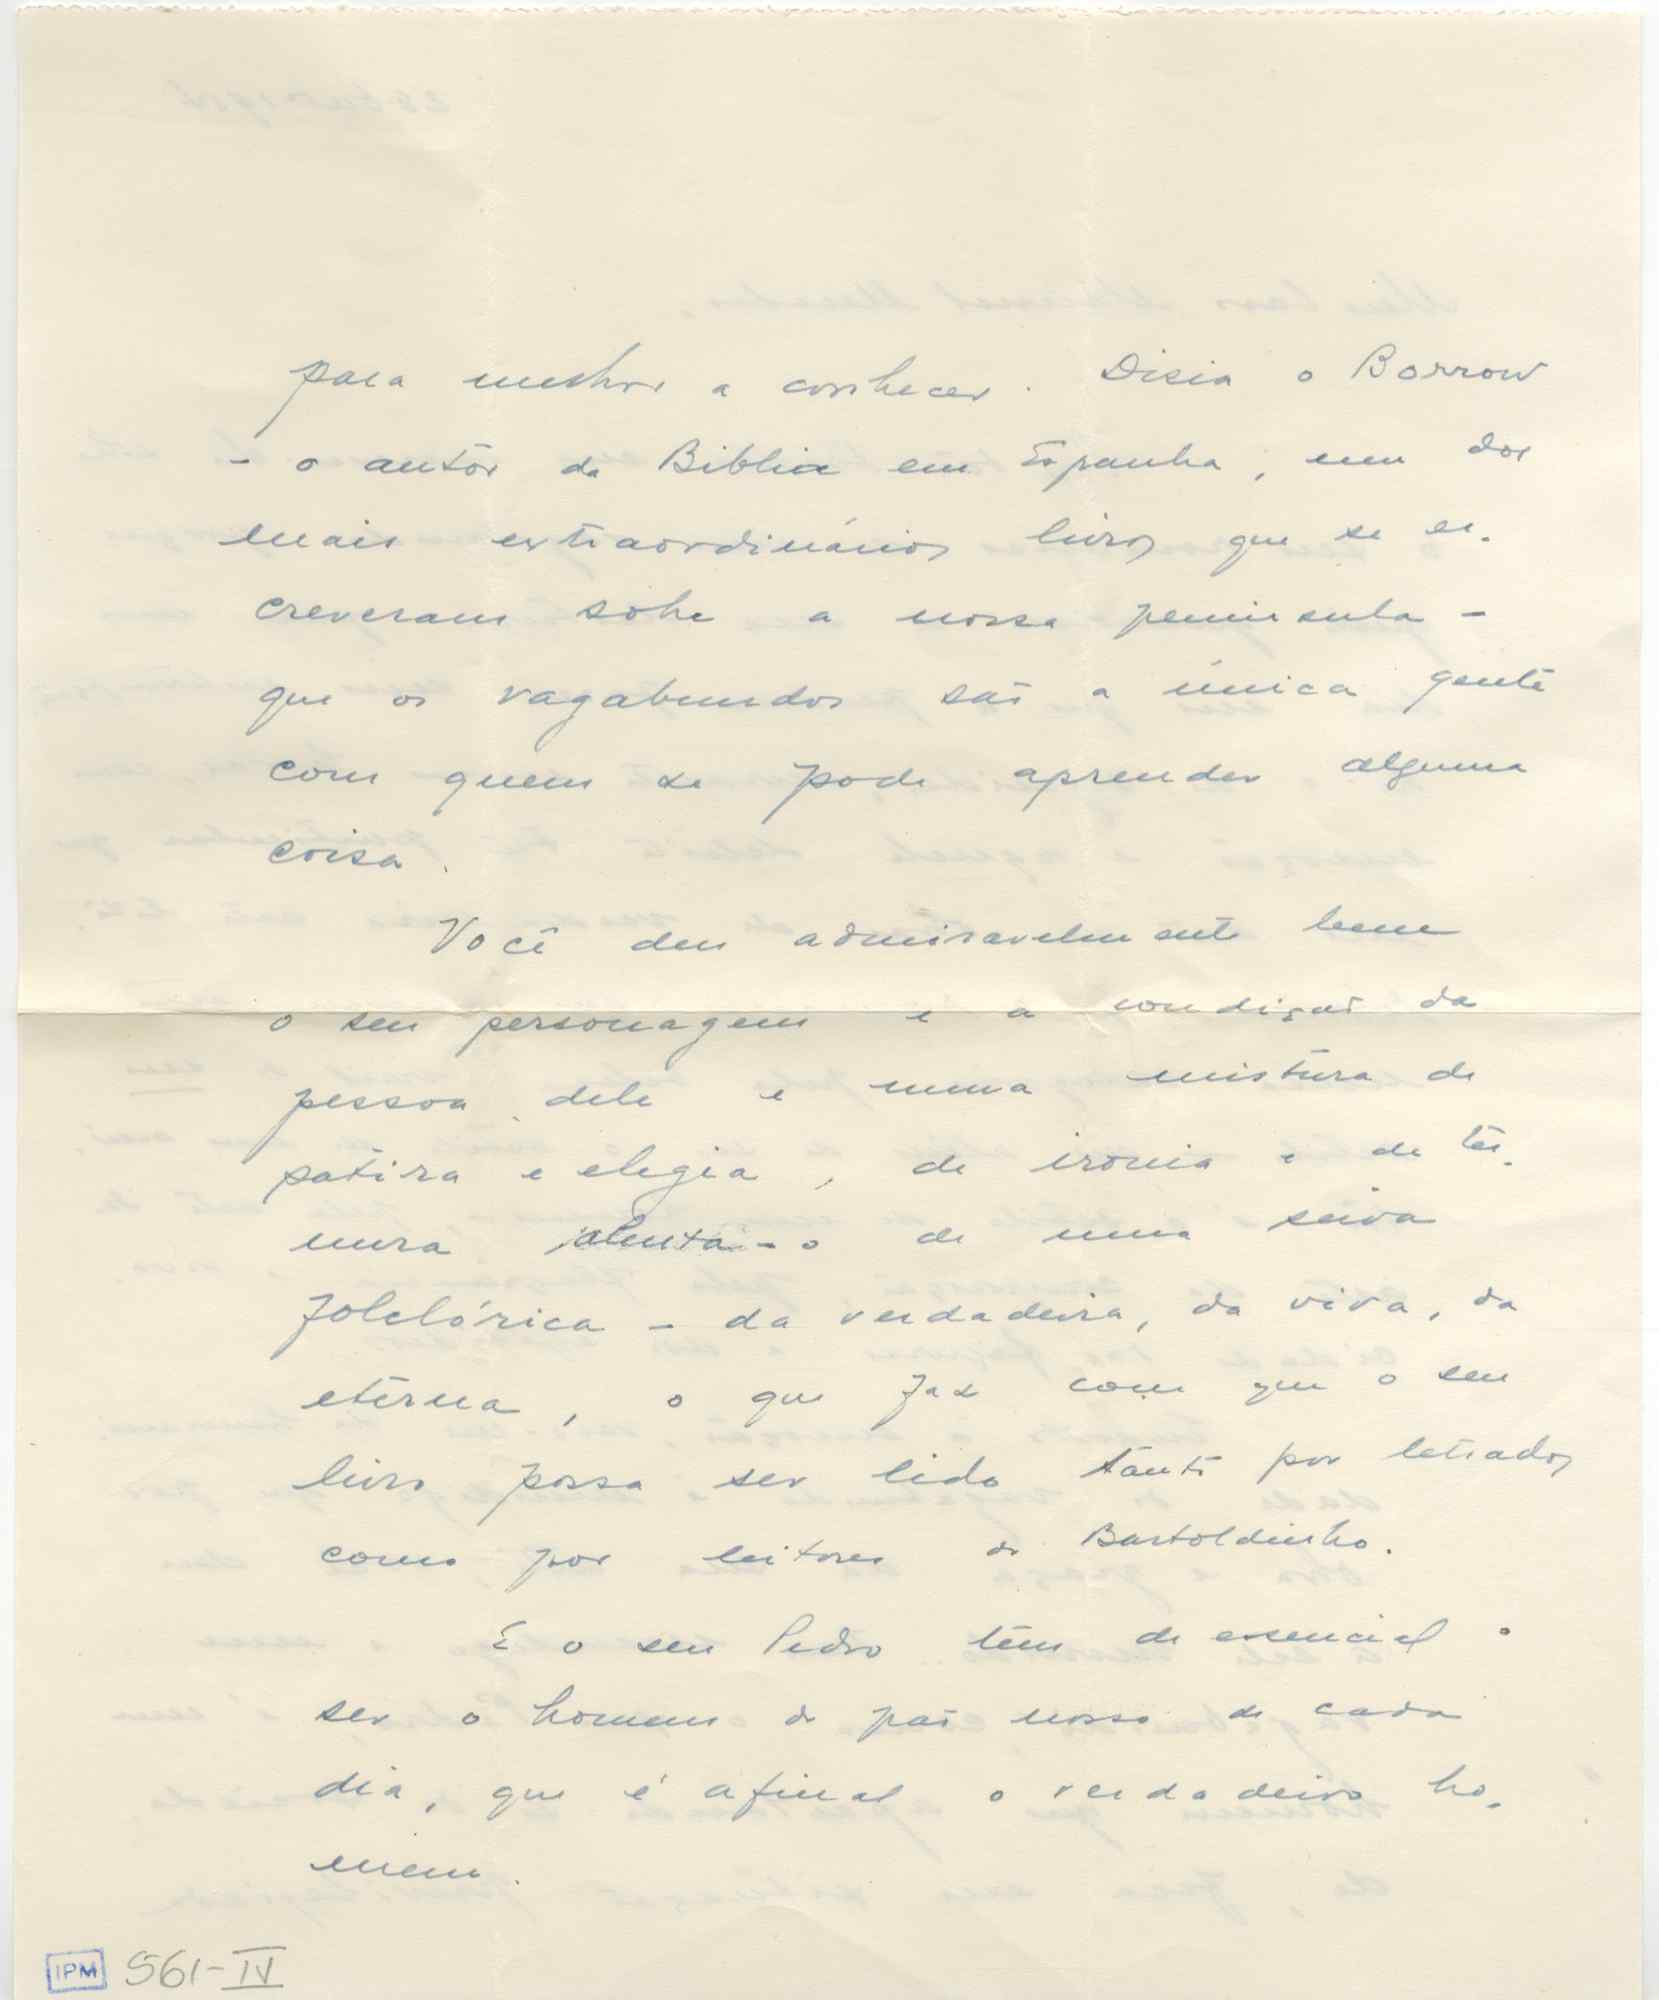 para melhor a conhecer. Disia o Borrow
- o autôr da Biblia em Espanha, um dos
mais extraordinários livros que se es-
creveram sôbre a nossa peninsula -
que os vagabundos são a única gente
com quem se pode aprender alguma
coisa.
Você deu admiravelmente bem
o seu personagem e a condição da
pessoa dele e numa mistura de
satira e elegia, de ironia e de ter-
nura alenta-o de uma seiva
folclórica - da verdadeira, da viva, da
eterna, o que faz com que o seu
livro possa ser lido tanto por letrados
como por leitores do Bartoldinho.
E o seu Pedro tem de essencial o
ser o homem do pão nosso de cada
dia, que é afinal o verdadeiro ho-
mem.
IPM 561-IV